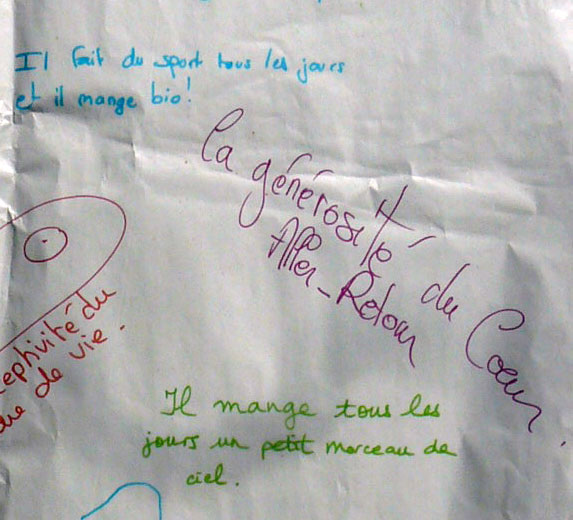 Il fait du sport tous les jours
et il mange bio!
la générosité du Coeur.
Aller-Retour
de vie.
Il mange tous les
jours un petit morceau de
ciel.